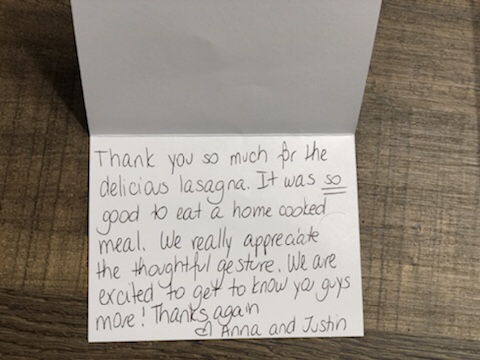 Thank you so much for the
delicious lasagna. It was so
good to eat a home cooked
meal. We really appreciate
the thoughtful gesture. We are
excited to get to know you guys
more! Thanks again
♡ Anna and Justin